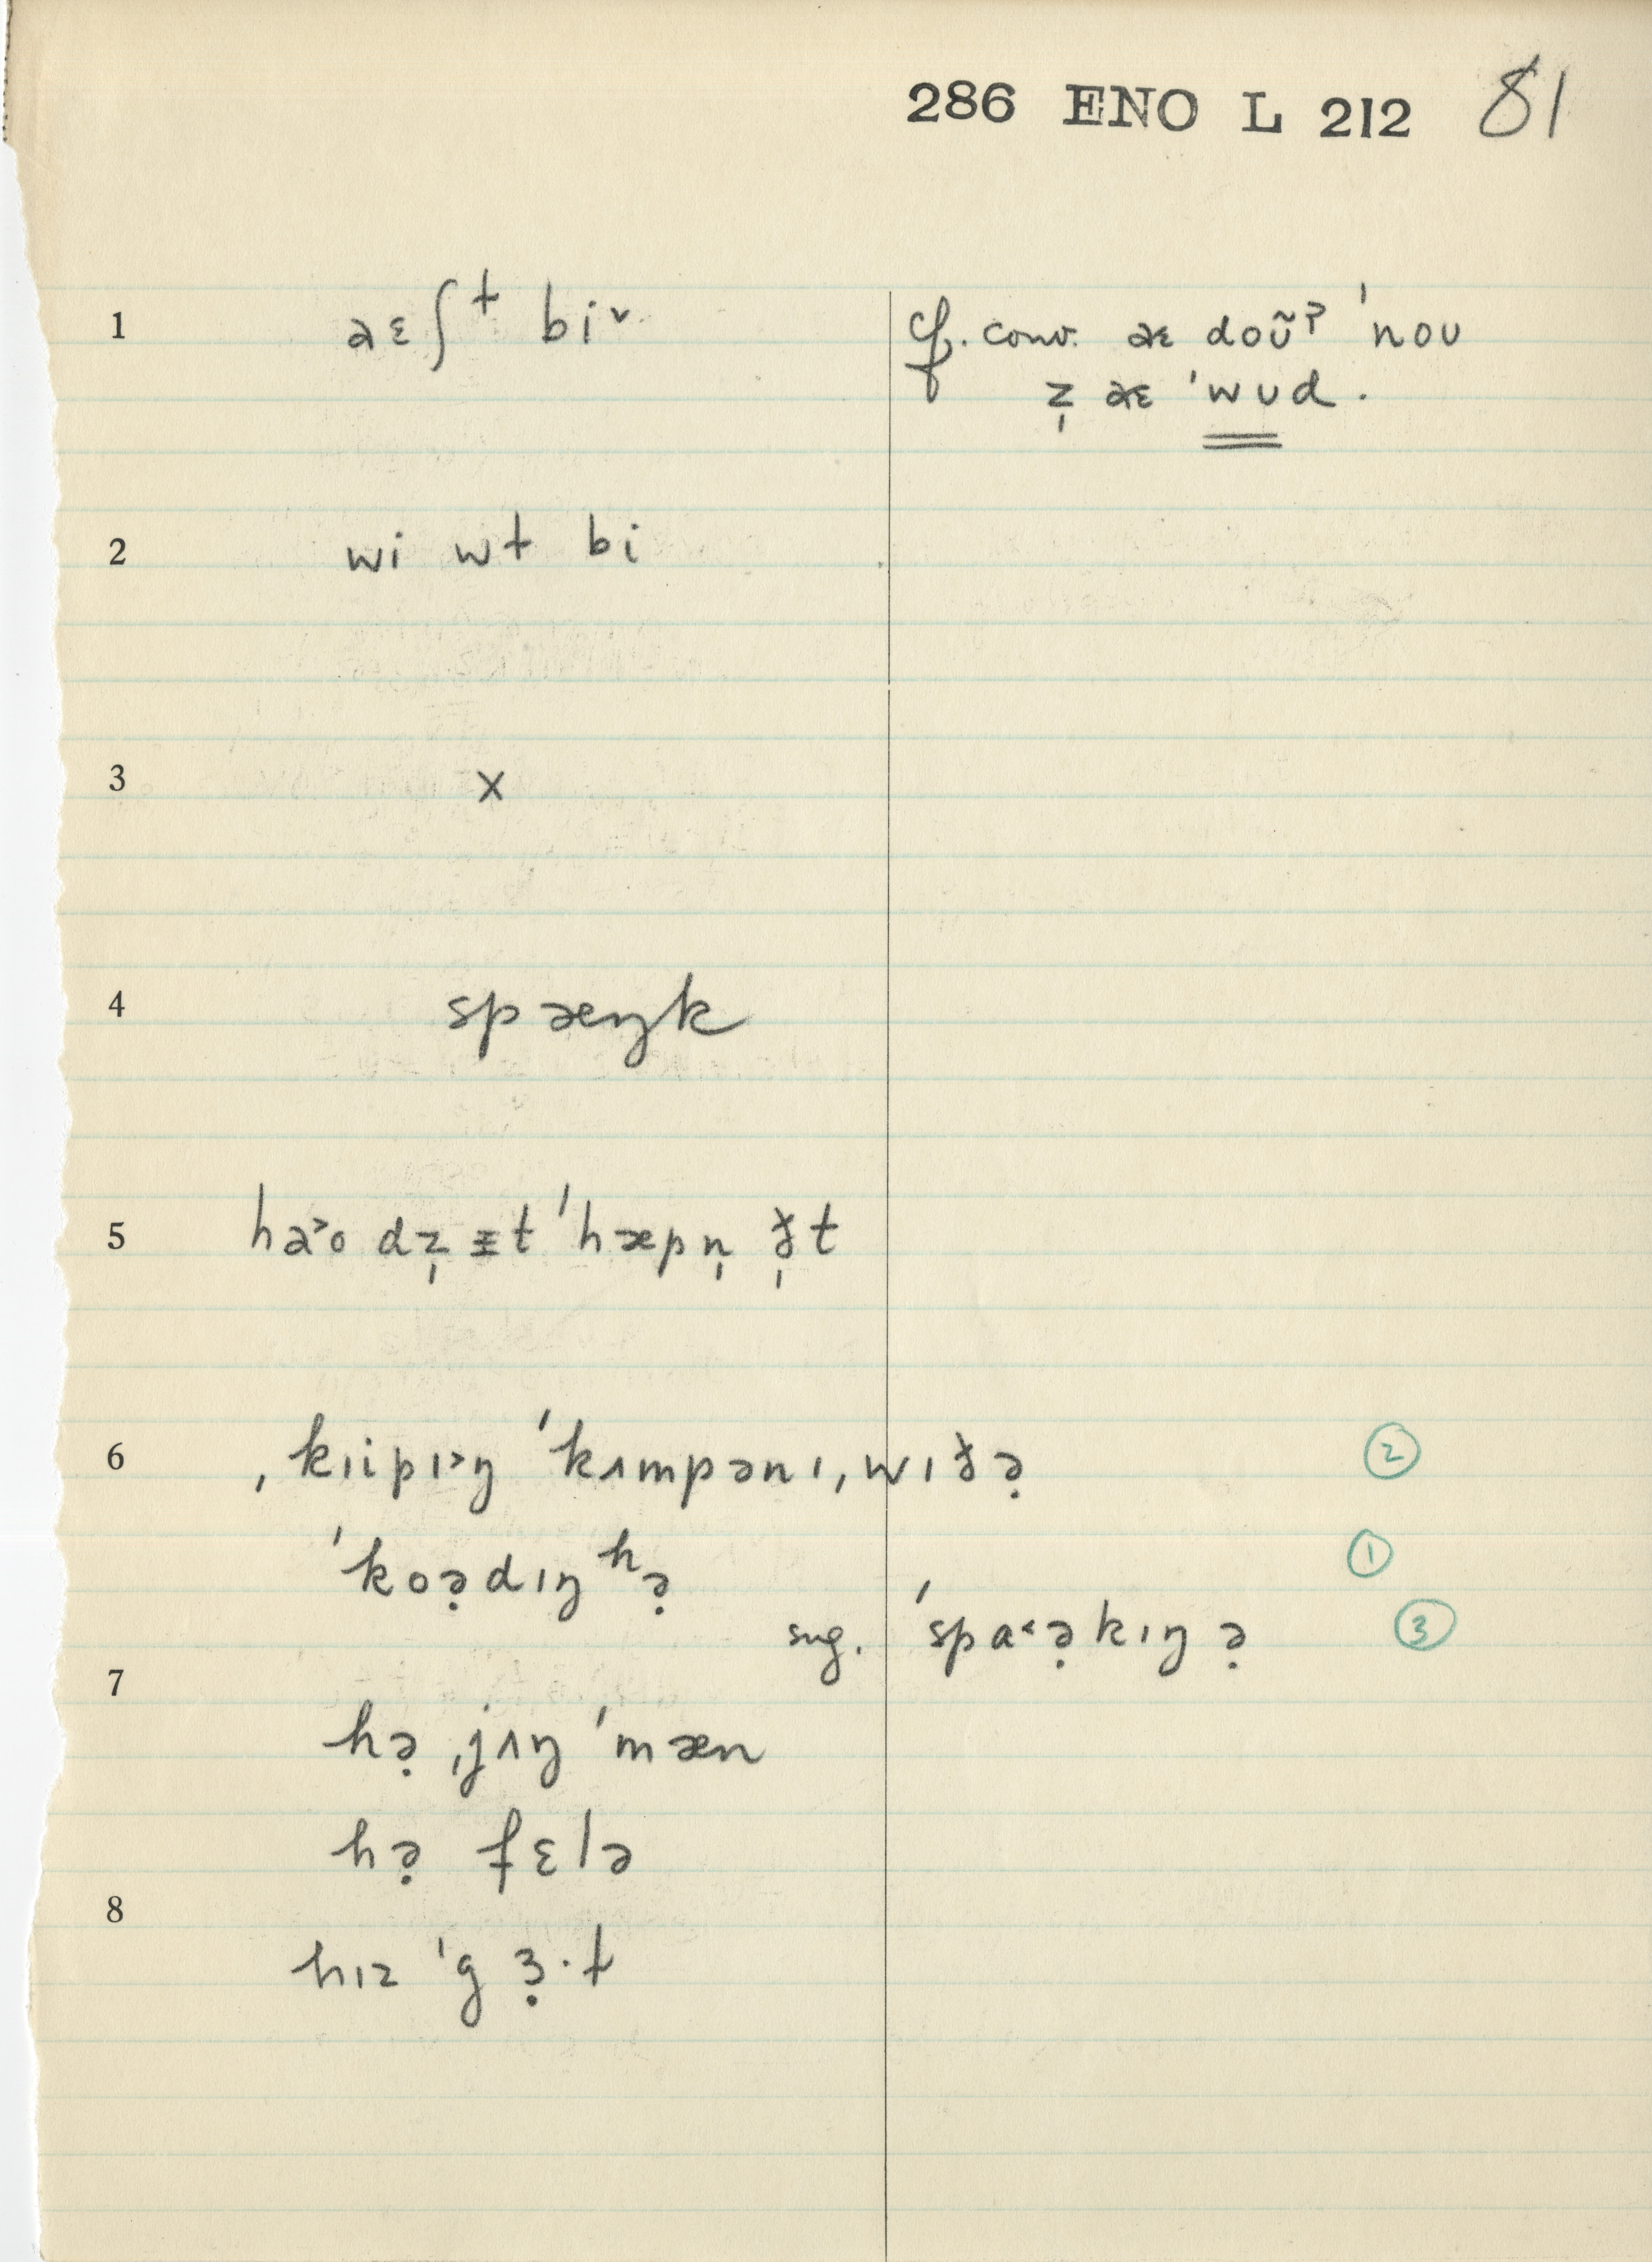 286 ENO L 212 81
1 aɛʃɫ biˇ cf. conv. aɛ doʊ̃ʔ ˈnoʊ
z̩ aɛ ˈwʊd.
2 wi wɫ bi
3 x
4 spæŋk
5 ha˃o dz̩ ɪt ˈhæpn̩ ð̩t
6 ˌkɪipɪ˃ŋ ˈkʌmpənɪ ˌwɪðə̣ ②
ˈkoə̣dɪŋ ʰə̣ ①
sug. ˈspa˂ə̣kɪŋ ə̣ ③
7
hə̣ ˌjʌŋ ˈmæn
hə̣ fɛlə
8
hɪz ˈgɜ̣·ɫ